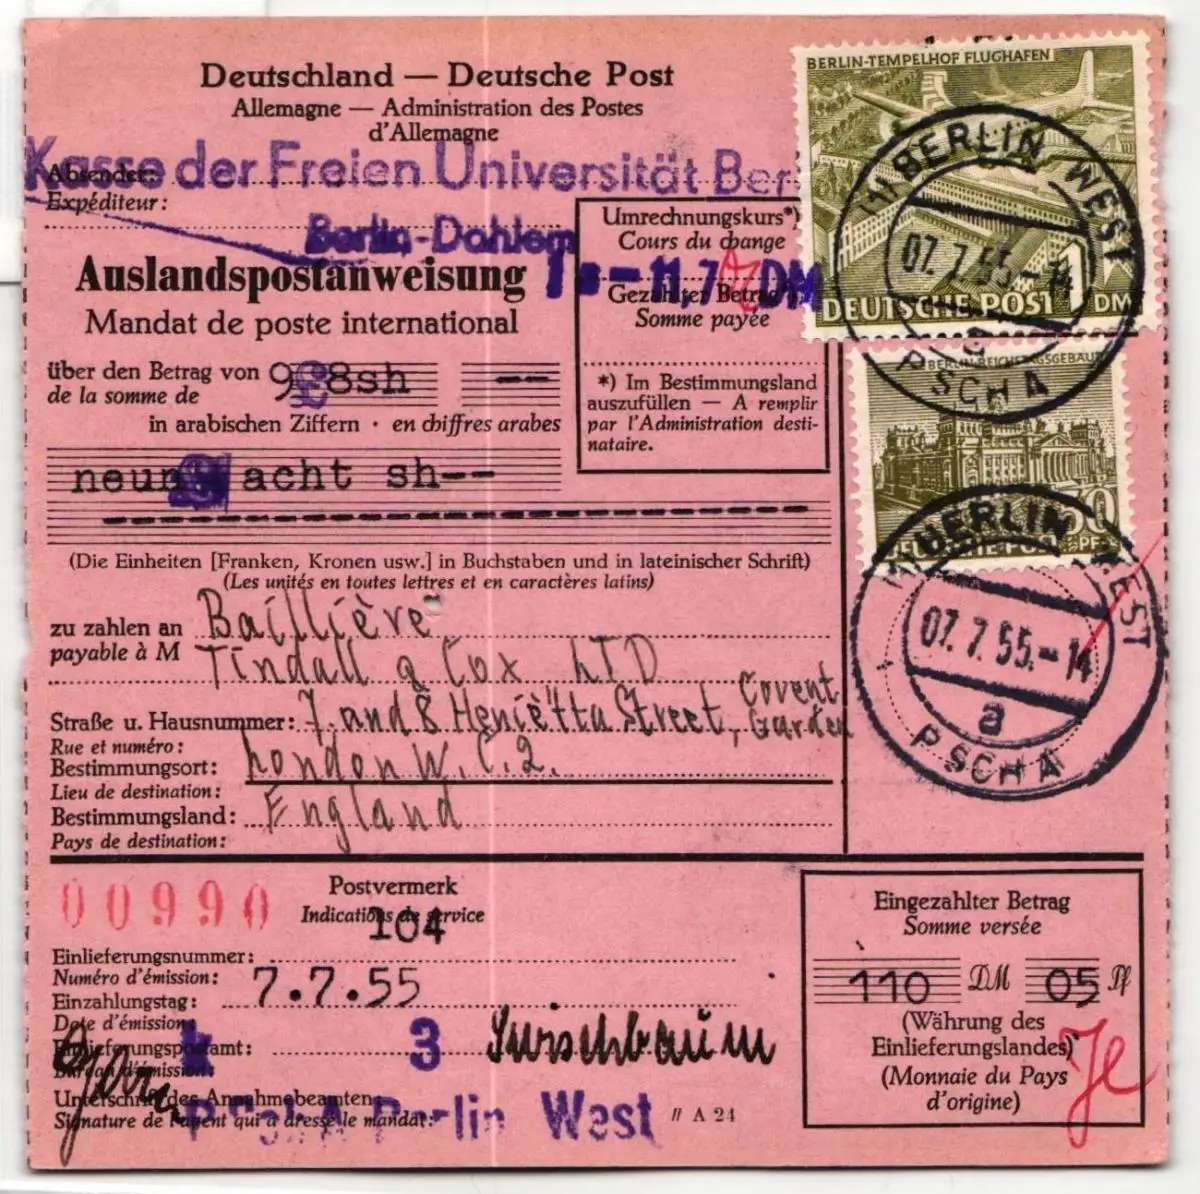 Deutschland — Deutsche Post
Allemagne — Administration des Postes
d'Allemagne
Kasse der Freien Universität Ber
Absender:
Expéditeur:
Berlin-Dahlem
Auslandspostanweisung
Mandat de poste international
über den Betrag von 9£8sh --
de la somme de
in arabischen Ziffern · en chiffres arabes
neun £ acht sh--
(Die Einheiten [Franken, Kronen usw.] in Buchstaben und in lateinischer Schrift)
(Les unités en toutes lettres et en caractères latins)
Umrechnungskurs*)
Cours du change
DM
Gezahlter Betrag
Somme payée
*) Im Bestimmungsland
auszufüllen — A remplir
par l'Administration desti-
nataire.
BERLIN-TEMPELHOF FLUGHAFEN
DEUTSCHE POST 1 DM
BERLIN WEST
07.7.55.-14
a
PSCHA
BERLIN-REICHSTAGSGEBÄUDE
50
DEUTSCHE POST PF
BERLIN WEST
07.7.55.-14
a
PSCHA
zu zahlen an Baillière
payable à M Tindall & Cox LTD
Straße u. Hausnummer: 7. and 8 Henriëtta Street, Covent Garden
Rue et numéro:
Bestimmungsort: London W.C.2.
Lieu de destination:
Bestimmungsland: England
Pays de destination:
00990
Postvermerk
Indications de service
104
Einlieferungsnummer:
Numéro d'émission: 7.7.55
Einzahlungstag:
Date d'émission:
Einlieferungspostamt: 3
Bureau d'émission:
Unterschrift des Annahmebeamten:
Signature de l'agent qui a dressé le mandat:
PSchA Berlin West
// A 24
Eingezahlter Betrag
Somme versée
110 DM 05 Pf
(Währung des
Einlieferungslandes)
(Monnaie du Pays
d'origine)